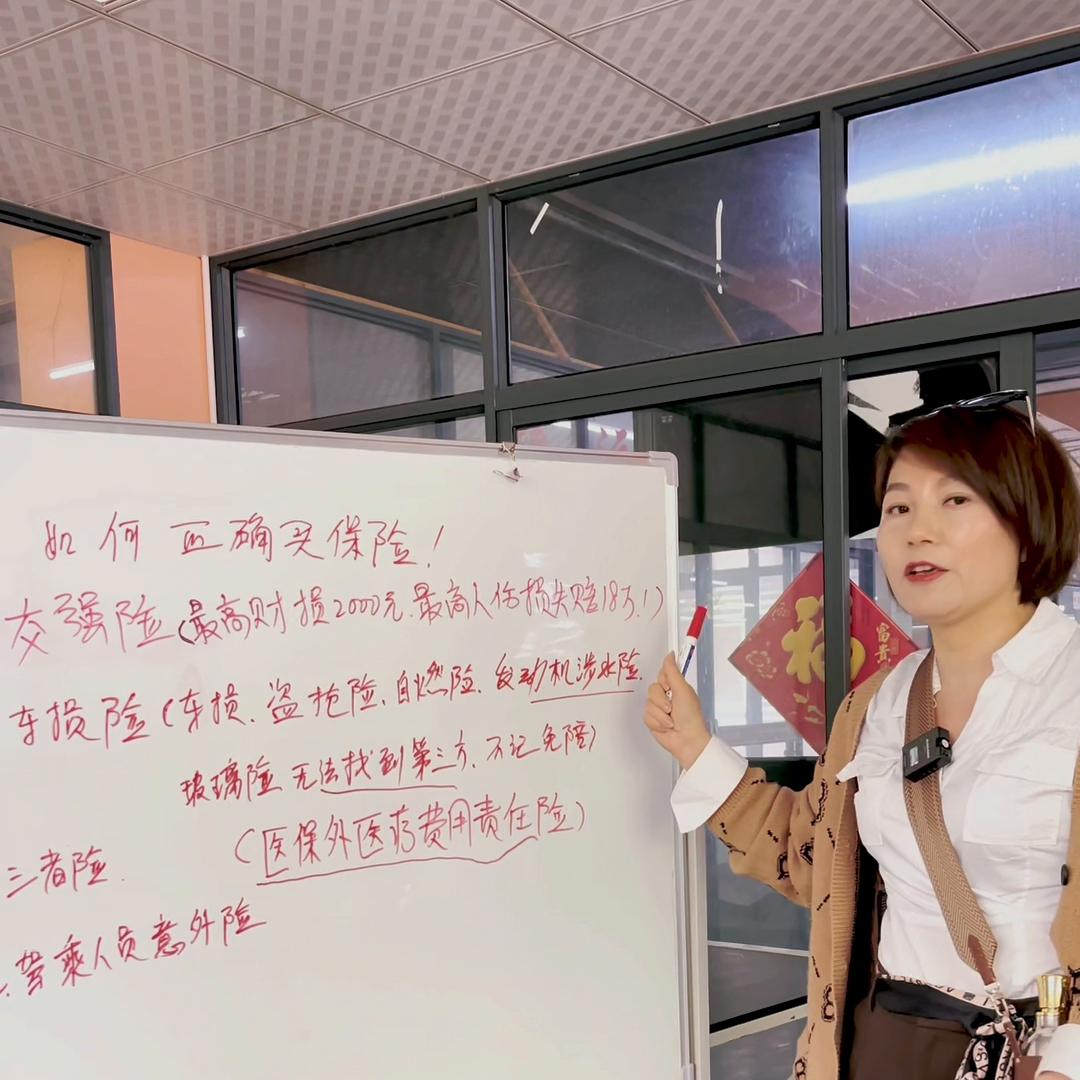 如何正确买保险！
交强险（最高财损2000元.最高人伤损失赔18万！）
车损险（车损、盗抢险、自燃险、发动机涉水险、
玻璃险 无法找到第三方、不记免赔）
三者险. （医保外医疗费用责任险）
驾乘人员意外险
福
富贵